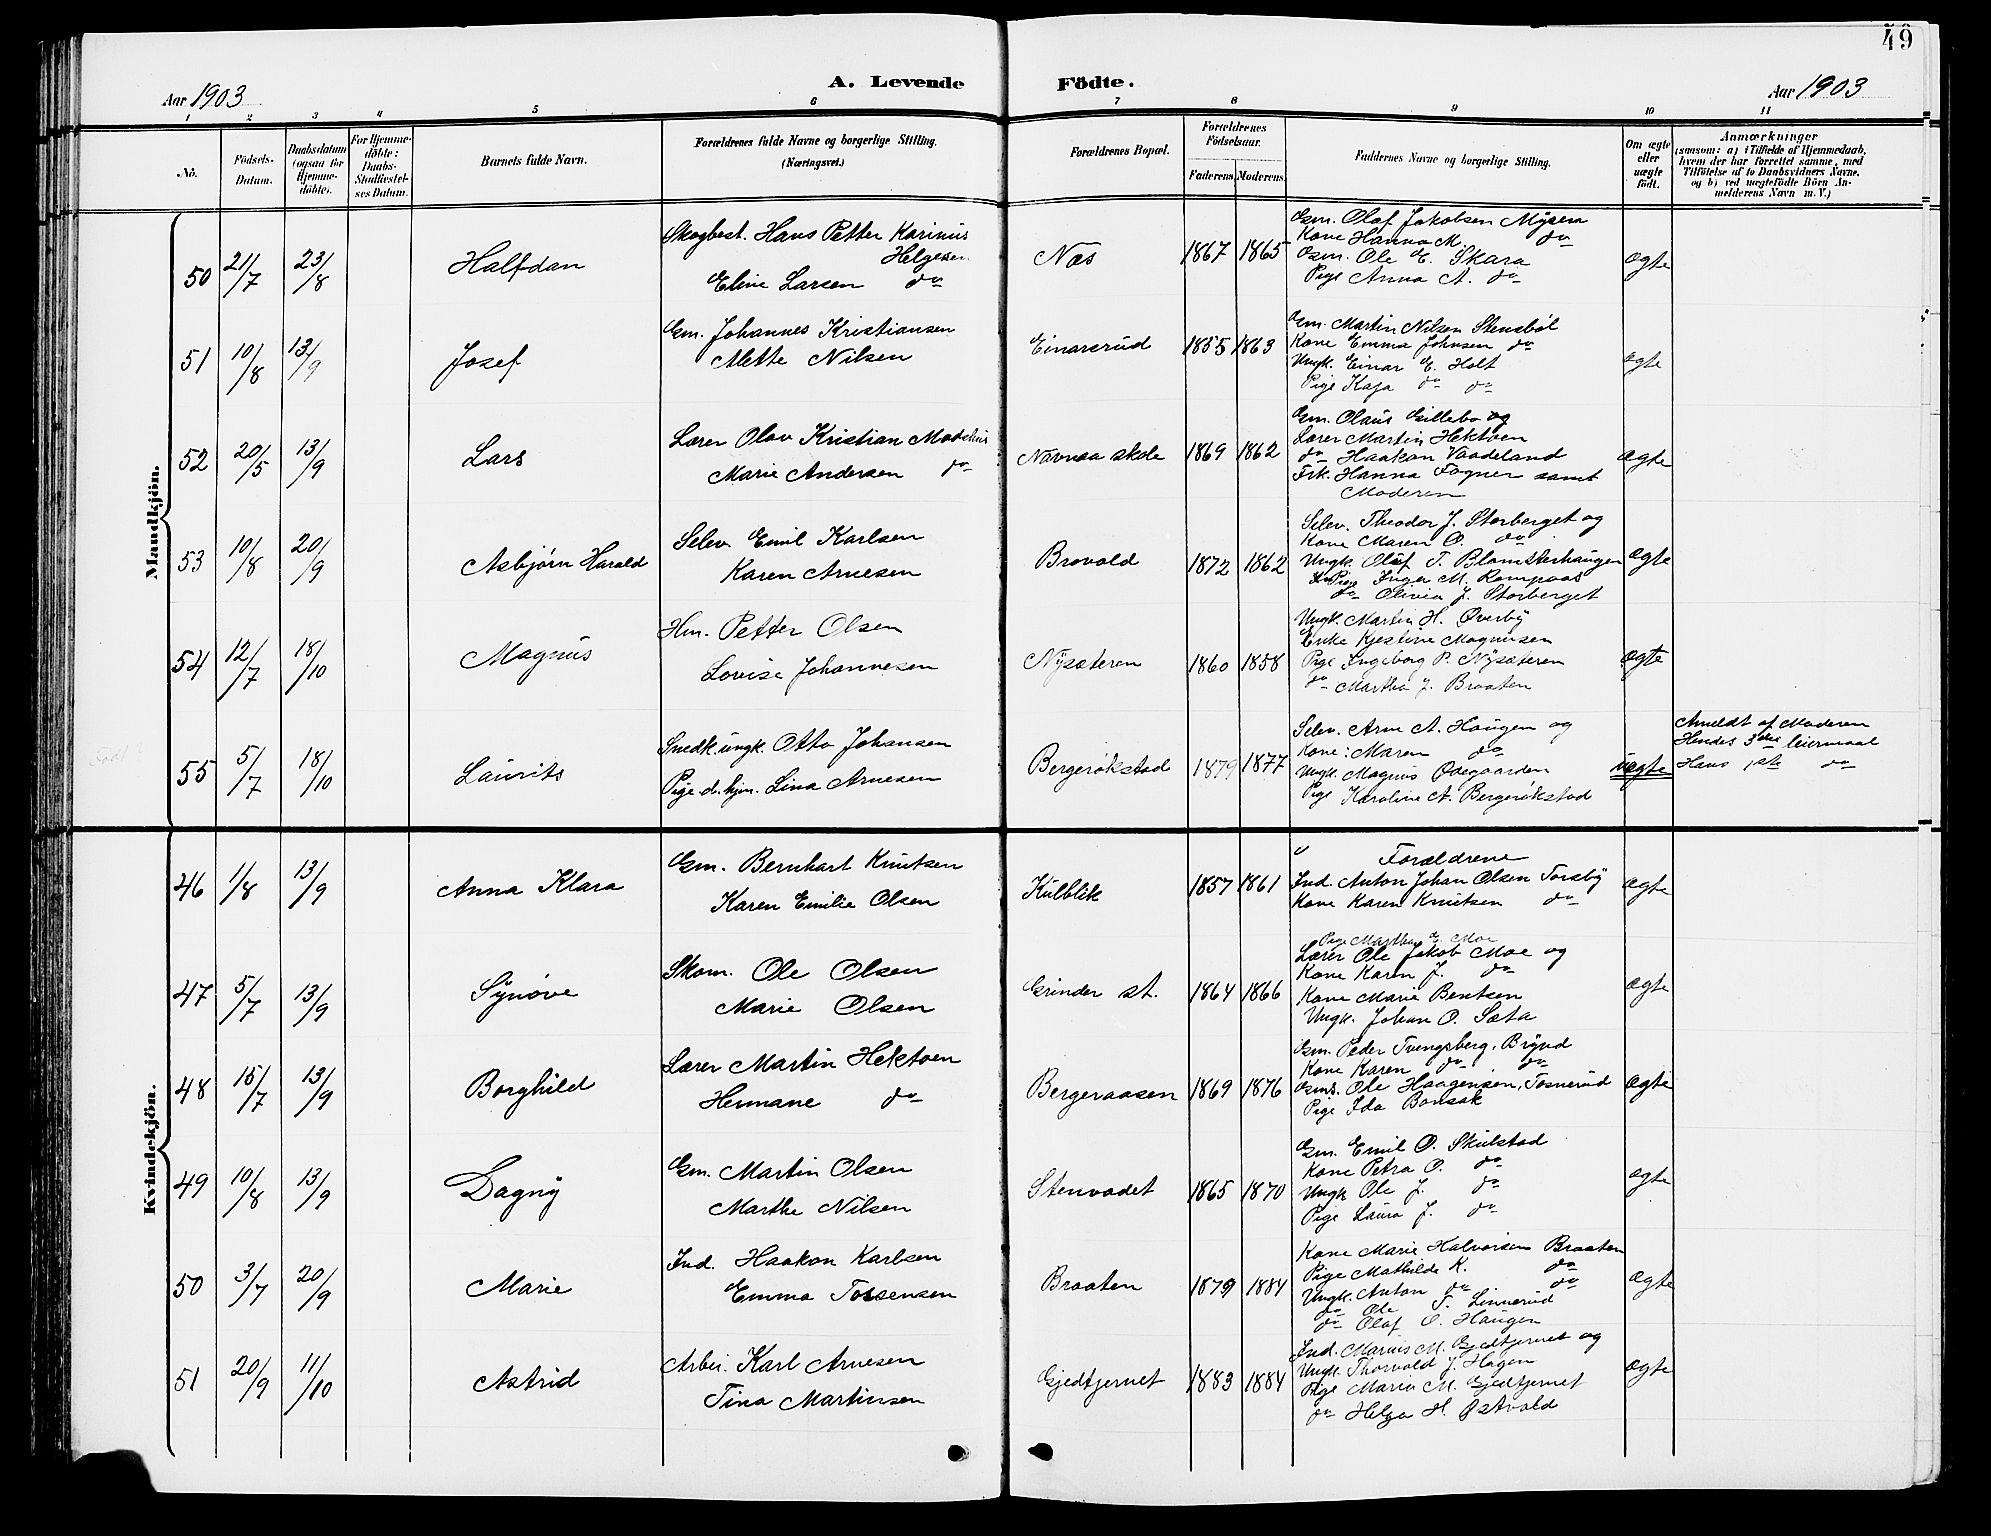 49
Aar 1903
A. Levende
Födte.
Aar 1903
1 2 3 4 5 6 7 8 9 10 11
No.
Födsels-
Datum.
Daabsdatum
(ogsaa for
Hjemme-
döbte).
For Hjemme-
döbte:
Daabs-
Stadfæstel-
ses Datum.
Barnets fulde Navn.
Forældrenes fulde Navne og borgerlige Stilling.
(Næringsvei.)
Forældrenes Bopæl.
Forældrenes
Födselsaar.
Faderens. Moderens.
Faddernes Navne og borgerlige Stilling.
Om ægte
eller
uægte
födt.
Anmærkninger
(saasom: a) i Tilfælde af Hjemmedaab,
hvem der har forrettet samme, med
Tilföielse af to Daabsvidners Navne.
og b) ved uægtefödte Börn An-
melderens Navn m. V.)
Mandkjön.
50 21/7 23/8 Halfdan
Skogbest. Hans Petter Karinius
Helgesen
Eline Larsen do
Næs 1867 1865
Gm. Olaf Jakobsen Myrera
Kone Hanna M. do
Gsm. Ole E. Skara
Pige Anna A. do
ægte
51 10/8 13/9 Josef
Gm. Johannes Kristiansen
Mette Nilsen
Einarsrud 1855 1863
Gm. Martin Nilsen Stensböl
Kone Emma Johnsen do
Ungk. Einar E. Holt
Pige Kaja do do
ægte
52 20/5 13/9 Lars
Lærer Olav Kristian Modelius
Marie Andersen do
Navnaa skole 1869 1862
Gm. Olaus Gillebo og
Lærer Martin Hektoen
do Haakon Vaadeland
Frk. Hanna Fogner samt
Moderen
ægte
53 10/8 20/9 Asbjørn Harald
Selev. Emil Karlsen
Karen Arnesen
Brovold 1872 1862
Selev. Theodor J. Storberget og
Kone Maren O. do
Ungk. Oluf T. Blomsterhaugen
Pige Inga M. Rompaas
do Olivia J. Storberget
ægte
54 12/7 18/10 Magnus
Hm. Petter Olsen
Lovise Johannesen
Nysæteren 1860 1858
Ungk. Martin H. Øverby
Enke Kjestine Magnusen
Pige Ingeborg P. Nysæteren
do Martha J. Braaten
ægte
55 5/7 18/10 Laurits
Snedk. ungk. Otto Johansen
Pige d. hjm. Lina Arnesen
Bergerökstad 1879 1877
Selev. Arne A. Haugen og
Kone: Maren do
Ungk. Magnus Ødegaarden
Pige Karoline A. Bergerökstad
uægte
Anmeldt af Moderen
Hendes 3die leiermaal
Hans 1ste do
Kvindekjön.
46 1/8 13/9 Anna Klara
Gm. Bernhart Knutsen
Karen Emilie Olsen
Kulblik 1857 1861
Forældrene
Ind. Anton Johan Olsen Torsby
Kone Karen Knutsen do
ægte
47 5/7 13/9 Synøve
Skom. Ole Olsen
Marie Olsen
Grinder st. 1864 1866
Pige Martha E. Moe
Lærer Ole Jakob Moe og
Kone Karen J. do
Kone Marie Bentsen
Ungk. Johan O. Sæta
ægte
48 15/7 13/9 Borghild
Lærer Martin Hektoen
Hermane do
Bergeraasen 1869 1876
Gm. Peder Tvengsberg, Brynd
Kone Karen do do
Gms. Ole Haagensen, Tosnerud
Pige Ida Bonsak
ægte
49 10/8 13/9 Dagny
Gm. Martin Olsen
Marthe Nilsen
Stenvadet 1865 1870
Gm. Emil O. Skulstad
Kone Petra O. do
Ungk Ole J. do
Pige Laura J. do
ægte
50 3/7 20/9 Marie
Ind. Haakon Karlsen
Emma Torsensen
Braaten 1879 1884
Kone Marie Halvorsen Braaten
Pige Mathilde K. do
Ungk. Anton do do
do Ole T. Linnerud
do Olaf O. Haugen
ægte
51 20/9 11/10 Astrid
Arbei. Karl Arnesen
Tina Martinsen
Gjedtjernet 1883 1884
Ind. Marius M. Gjedtjernet og
Ungk. Thorvald J. Hagen
Pige Maria M. Gjedtjernet
do Helga H. Østvold
ægte